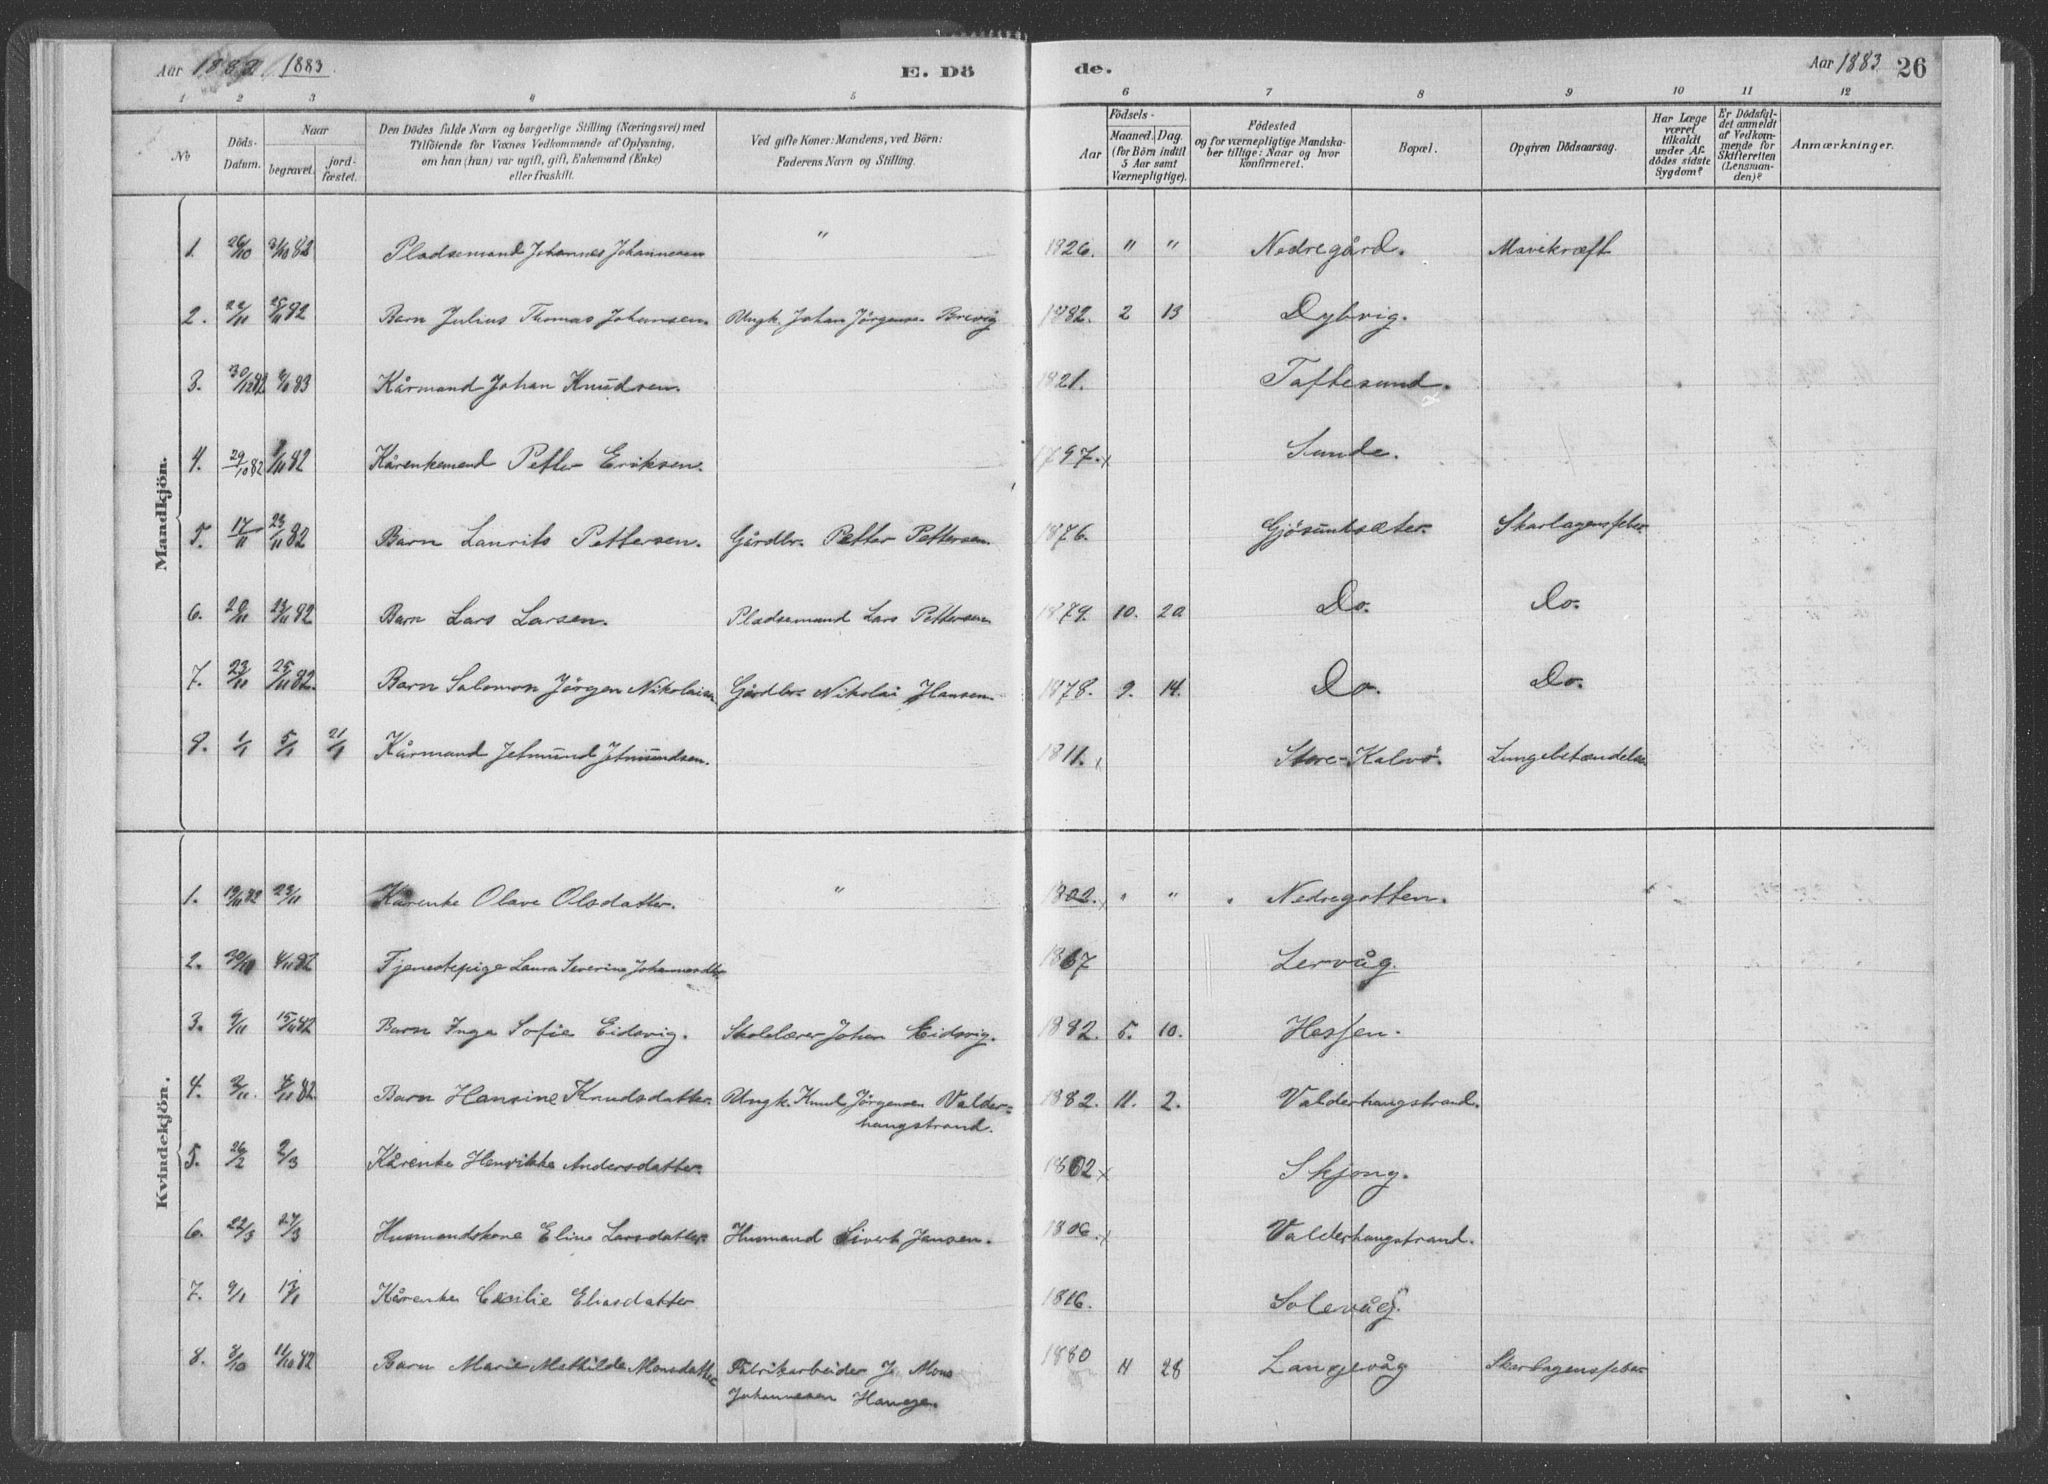 Aar 1882 1883. E. Dö de. Aar 1883 26
1 2 3 4 5 6 7 8 9 10 11 12
No Döds-Datum. Naar begravet. jord-fæstet. Den Dödes fulde Navn og borgerlige Stilling (Næringsvei) med Tilföiende for Voxnes Vedkommende af Oplysning, om han (hun) var ugift, gift, Enkemand (Enke) eller fraskilt. Ved gifte Koner: Mandens, ved Börn: Faderens Navn og Stilling. Födsels- Aar Maaned. Dag. (for Börn indtil 5 Aar samt Værnepligtige). Födested og for værnepligtige Mandskaber tillige: Naar og hvor konfirmeret. Bopæl. Opgiven Dödsaarsag. Har Læge været tilkaldt under Afdödes sidste Sygdom? Er Dödsfaldet anmeldt af Vedkommende for Skifteretten (Lensmanden)? Anmærkninger.
Mandkjön.
1. 26/10 31/10 82 Pladsemand Johannes Johannesen " 1826. " " Nedregård. Mavekræft
2. 22/11 26/11 82 Barn Julius Thomas Johansen. Ungk. Johan Jörgensen Brevig 1882. 2 13 Dybvig.
3. 30/12 82 6/1 83 Kårmand Johan Knudsen. 1821. Taftesund.
4. 29/10 82 /11 82 Kårenkemand Petter Eriksen. 1797. x Sunde.
5. 17/11 23/11 82 Barn Laurits Pettersen. Gårdbr. Petter Pettersen. 1876. Gjösundsæter. Skarlagensfeber
6. 20/11 23/11 82 Barn Lars Larsen. Pladsemand Lars Pettersen 1879. 10. 20 Do. Do.
7. 23/11 25/11 82. Barn Salomon Jörgen Nikolaisen Gårdbr. Nikolai Hansen. 1878. 9. 14. Do. Do.
8. 1/1 5/1 21/1 Kårmand Jetmund Jetmundsen. 1811. Store-Kalvö. Lungebetændelse
Kvindekjön.
1. 19/11 82 23/11 Kårenke Olave Olsdatter. " 1802. x " " Nedregotten.
2. 30/10 4/11 82 Tjenestepige Laura Severine Johannesdtr. 1867 Lervåg.
3. 9/11 15/11 82 Barn Inga Sofie Eidsvig. Skolelærer Johan Eidsvig. 1882. 5. 10. Hessen.
4. 2/11. 4/11 82. Barn Hansine Knudsdatter. Ungk. Knud Jörgensen Valder-
haugstrand. 1882. 11. 2. Valderhaugstrand.
5. 26/2 2/3 Kårenke Henrikke Andersdatter. 1802 x Skjong.
6. 22/3 27/3 Husmandskone Eline Larsdatter. Husmand Sivert Jansen. 1806. x Valderhaugstrand.
7. 9/1 13/1 Kårenke Cecilie Eliasdatter 1816. Solevåg.
8. 8/10 11/10 82 Barn Marie Mathilde Monsdatter Fabrikarbeider J. Mons
Johannesen Hauge. 1880 11 28 Langevåg Skarlagensfeber